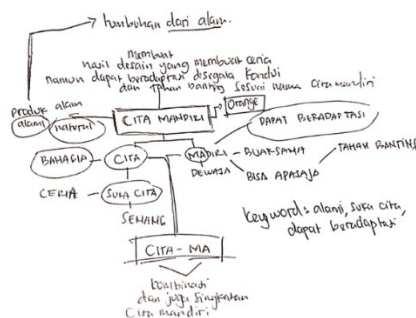 tumbuhan dari alam.
membuat
hasil desain yang membuat ceria
namun dapat beradaptasi disegala kondisi
dan tahan banting sesuai nama cita mandiri
produk alam
alami
natural
CITA MANDIRI
Orange
DAPAT BERADAPTASI
BAHAGIA
CITA
MADIRI
BIJAKSANA
TAHAN BANTING
DEWASA
BISA APASAJA
CERIA
SUKA CITA
SENANG
keyword: alami, suka cita,
dapat beradaptasi
CITA - MA
kombinasi
dan juga singkatan
Cita mandiri